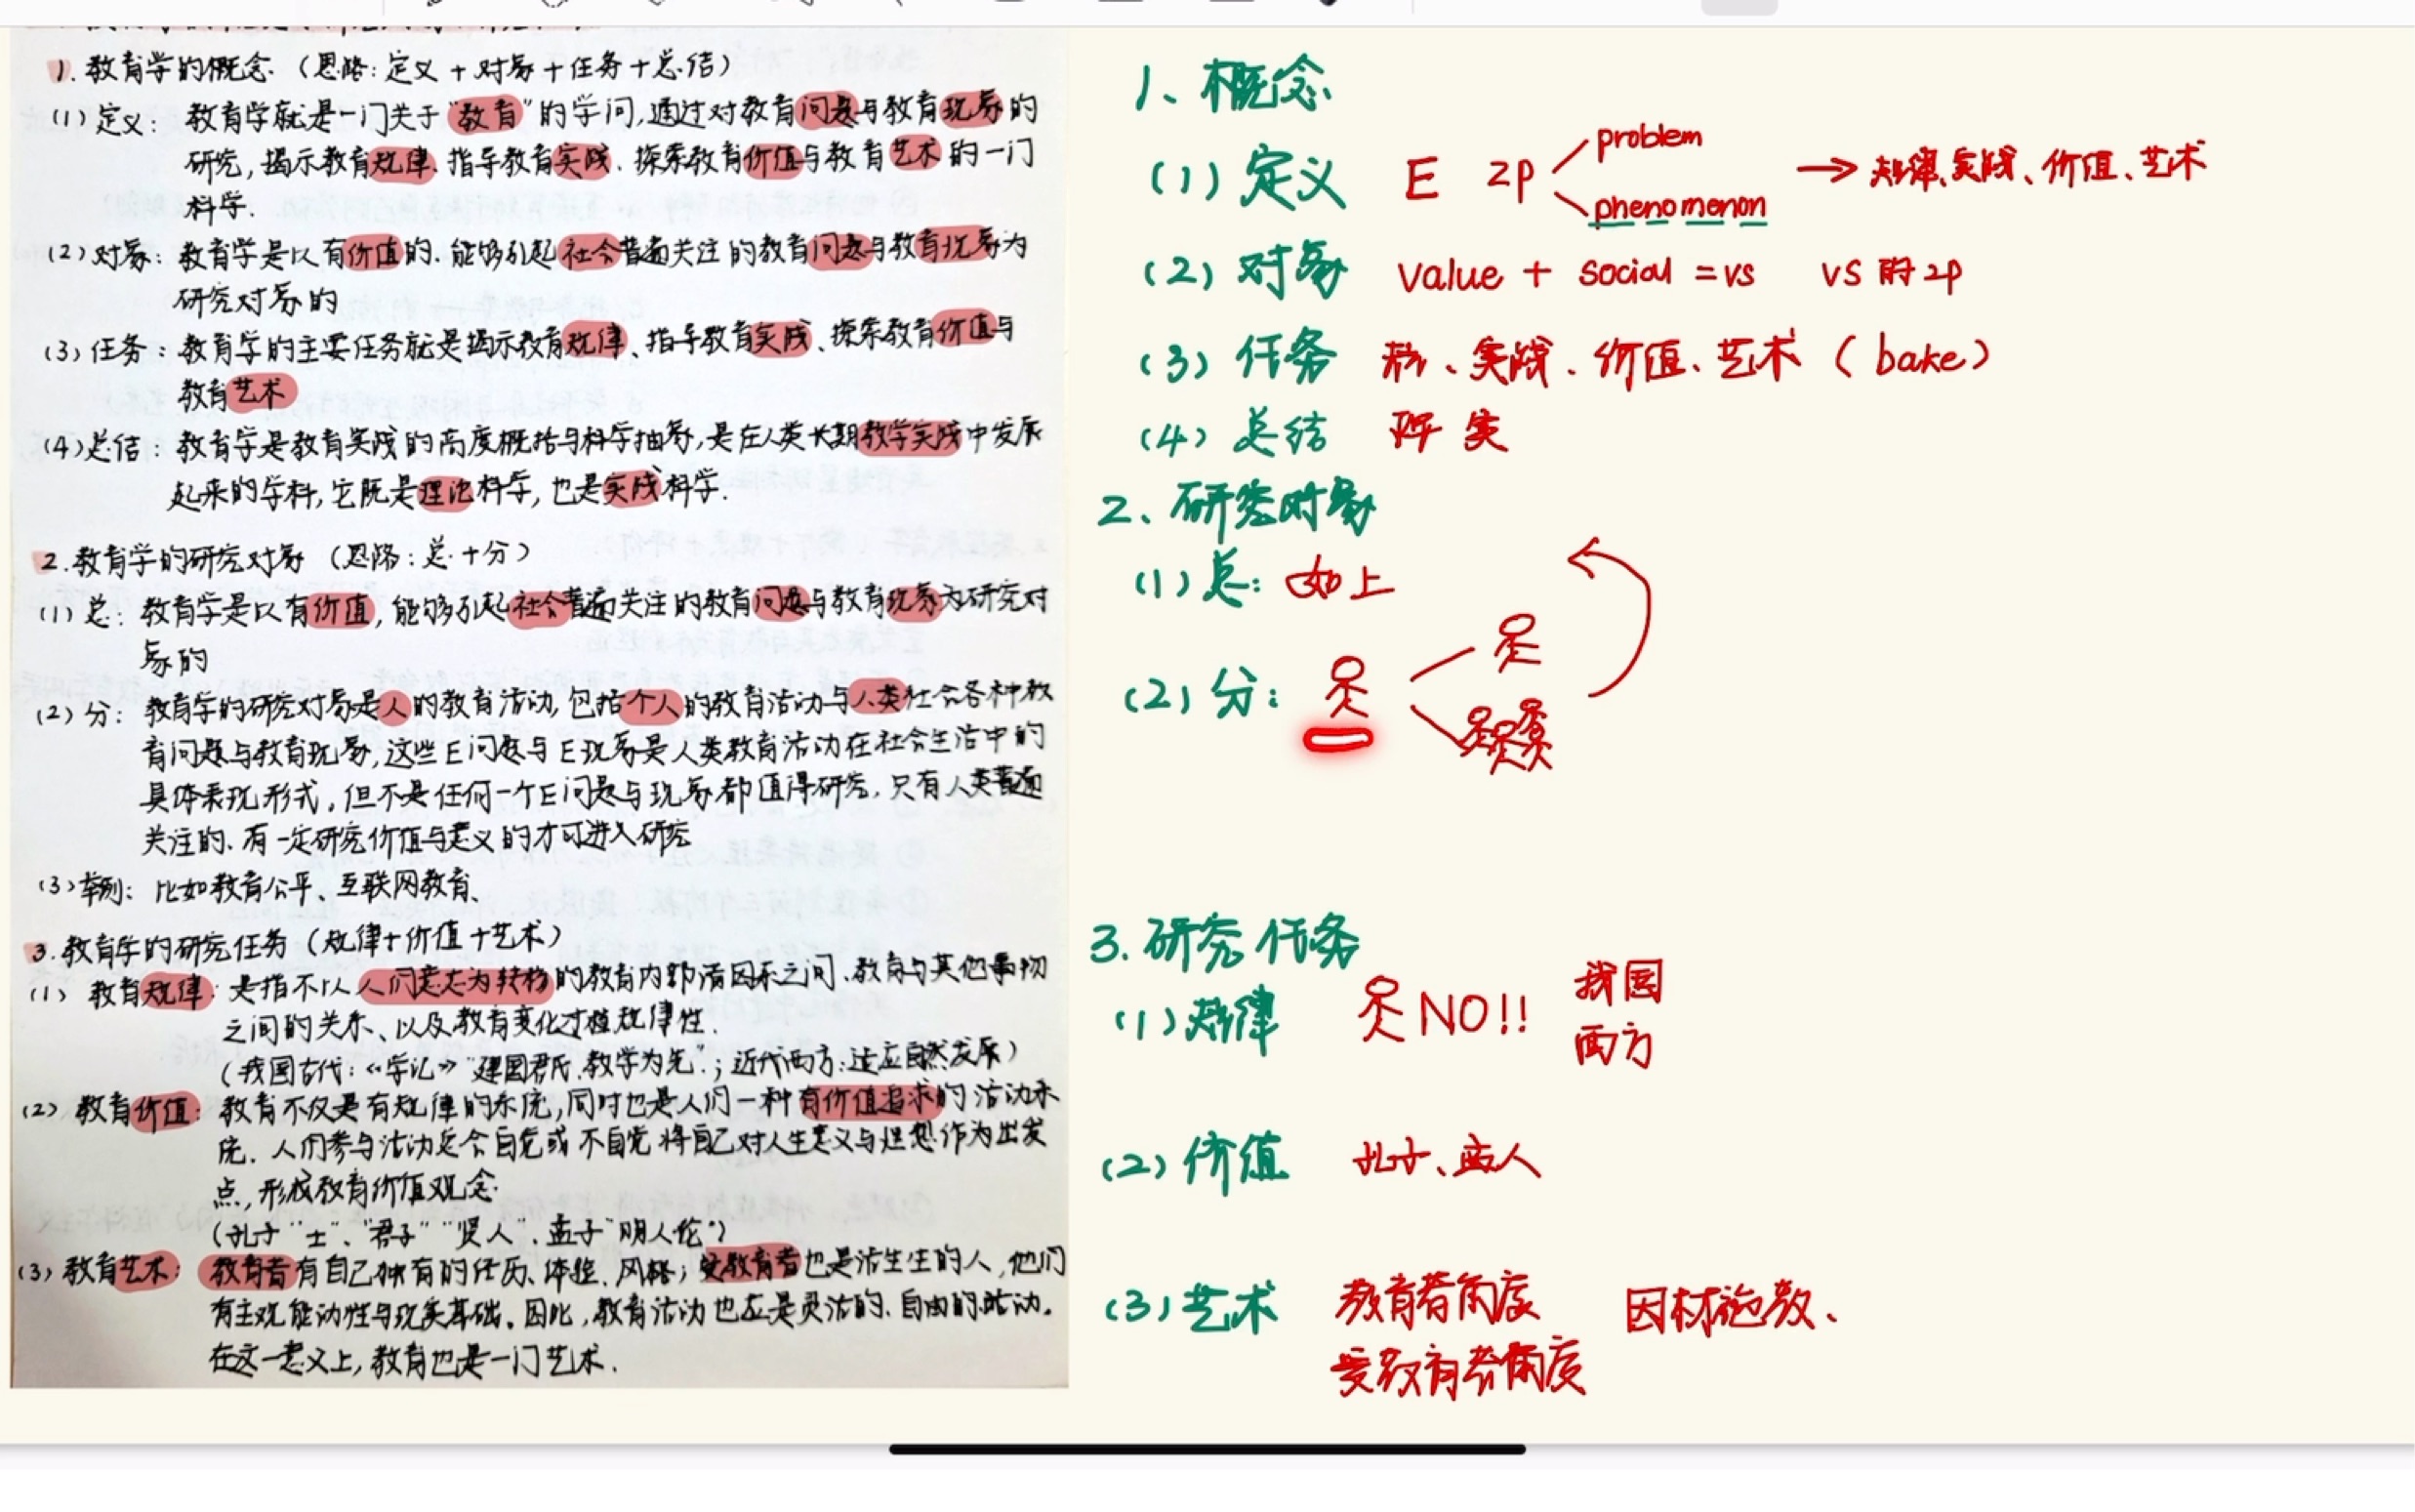 1. 教育学的概念.（思路: 定义 + 对象 + 任务 + 总结）
(1) 定义: 教育学就是一门关于"教育"的学问, 通过对教育问题与教育现象的
研究, 揭示教育规律、指导教育实践、探索教育价值与教育艺术的一门
科学.
(2) 对象: 教育学是以有价值的、能够引起社会普遍关注的教育问题与教育现象为
研究对象的
(3) 任务: 教育学的主要任务就是揭示教育规律、指导教育实践、探索教育价值与
教育艺术
(4) 总结: 教育学是教育实践的高度概括与科学抽象, 是在人类长期教学实践中发展
起来的学科, 它既是理论科学, 也是实践科学.
2. 教育学的研究对象（思路: 总 + 分）
(1) 总: 教育学是以有价值, 能够引起社会普遍关注的教育问题与教育现象为研究对
象的
(2) 分: 教育学的研究对象是人的教育活动, 包括个人的教育活动与人类社会各种教
育问题与教育现象, 这些E问题与E现象是人类教育活动在社会生活中的
具体表现形式, 但不是任何一个E问题与现象都值得研究, 只有人类普遍
关注的、有一定研究价值与意义的才可进入研究
(3) 举例: 比如教育公平、互联网教育、
3. 教育学的研究任务（规律+价值+艺术）
(1) 教育规律: 是指不以人们意志为转移的教育内部诸因素之间、教育与其他事物
之间的关系、以及教育变化才槌规律性.
（我国古代:《学记》"建国君民, 教学为先"; 近代西方: 适应自然发展）
(2) 教育价值: 教育不仅是有规律的系统, 同时也是人们一种有价值追求的活动系
统. 人们参与活动是会自觉或不自觉将自己对人生意义与理想作为出发
点, 形成教育价值观念.
（孔子"士"、"君子""贤人"、孟子"明人伦"）
(3) 教育艺术: 教育者有自己独有的经历、体验、风格; 受教育者也是活生生的人, 他们
有主观能动性与现实基础. 因此, 教育活动也应是灵活的、自由的活动.
在这一意义上, 教育也是一门艺术.
1、概念
(1) 定义 E 2p problem phenomenon → 规律、实践、价值、艺术
(2) 对象 value + social = vs vs 的 2p
(3) 任务 规、实践、价值、艺术（bake）
(4) 总结 实
2、研究对象
(1) 总: 如上
(2) 分:
3. 研究任务
(1) 规律 NO!! 我国
西方
(2) 价值 孔子、孟人
(3) 艺术 教育者角度 因材施教、
受教育者角度